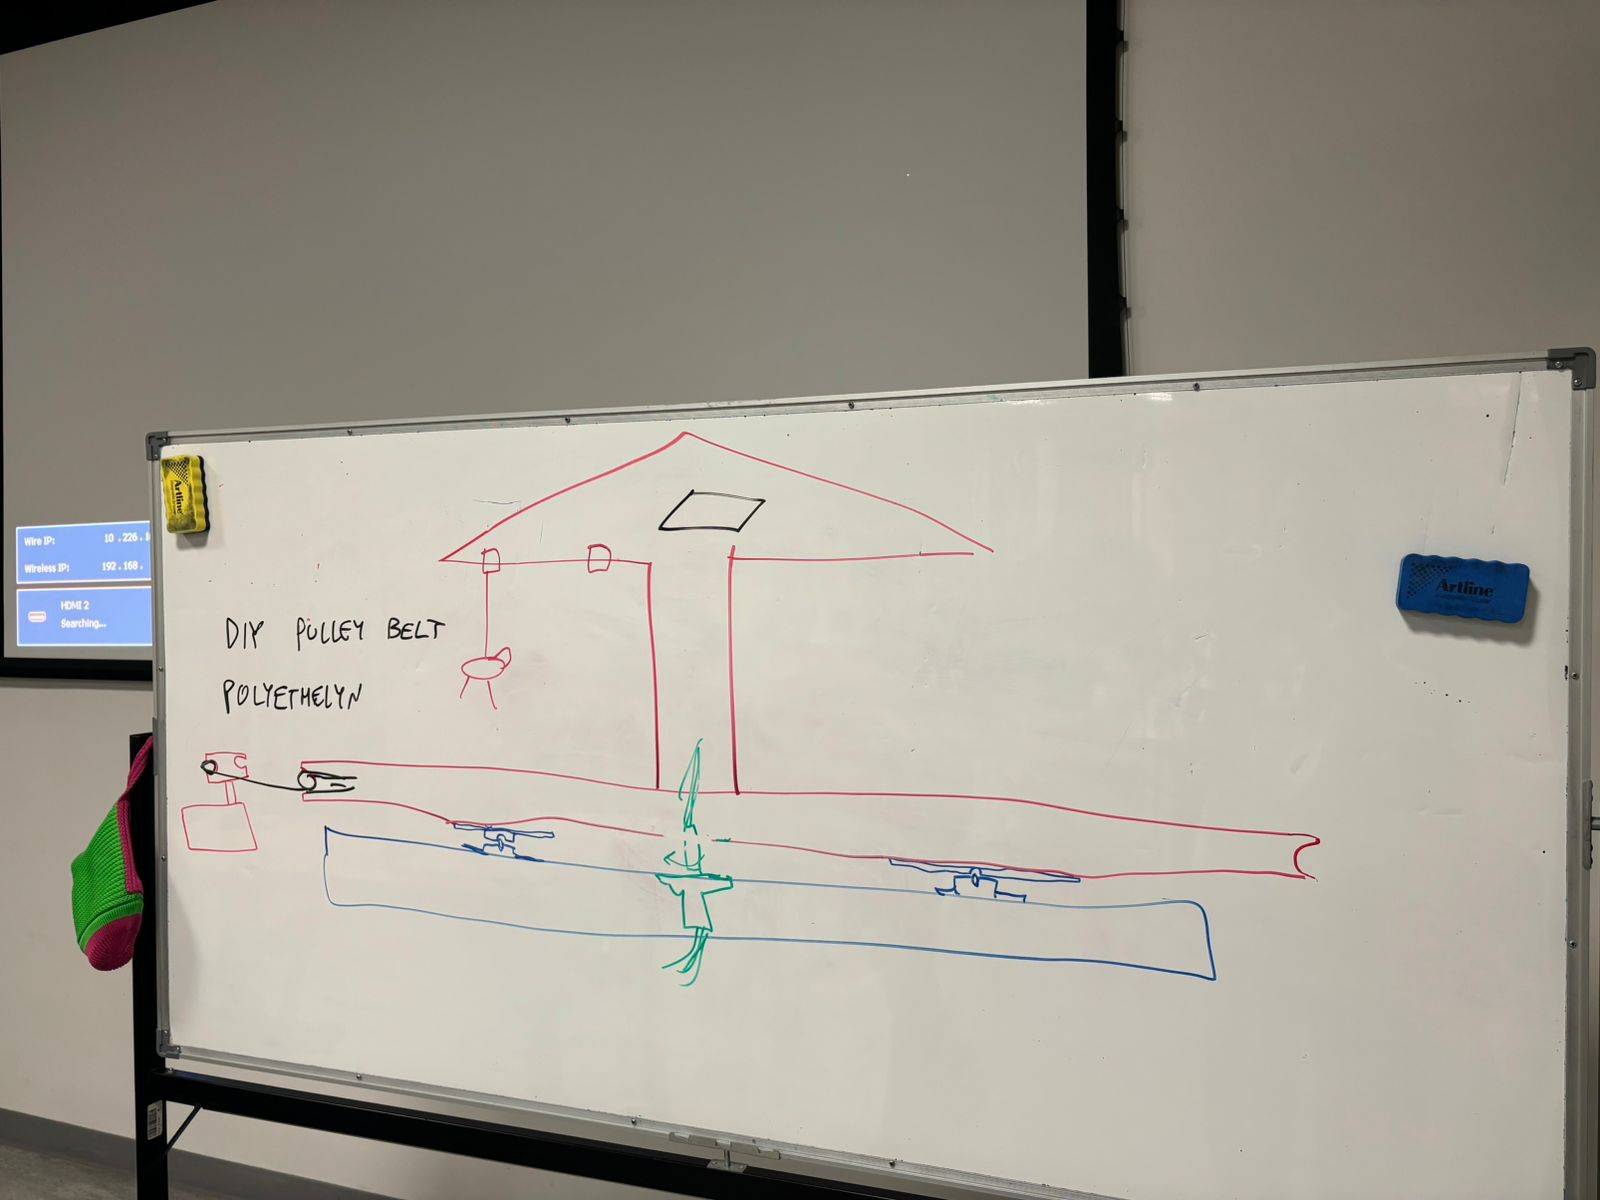 Artline
Wire IP: 10 .226.
Wireless IP: 192.168.
HDMI 2
Searching...
DIY PULLEY BELT
POLYETHELYN
Artline